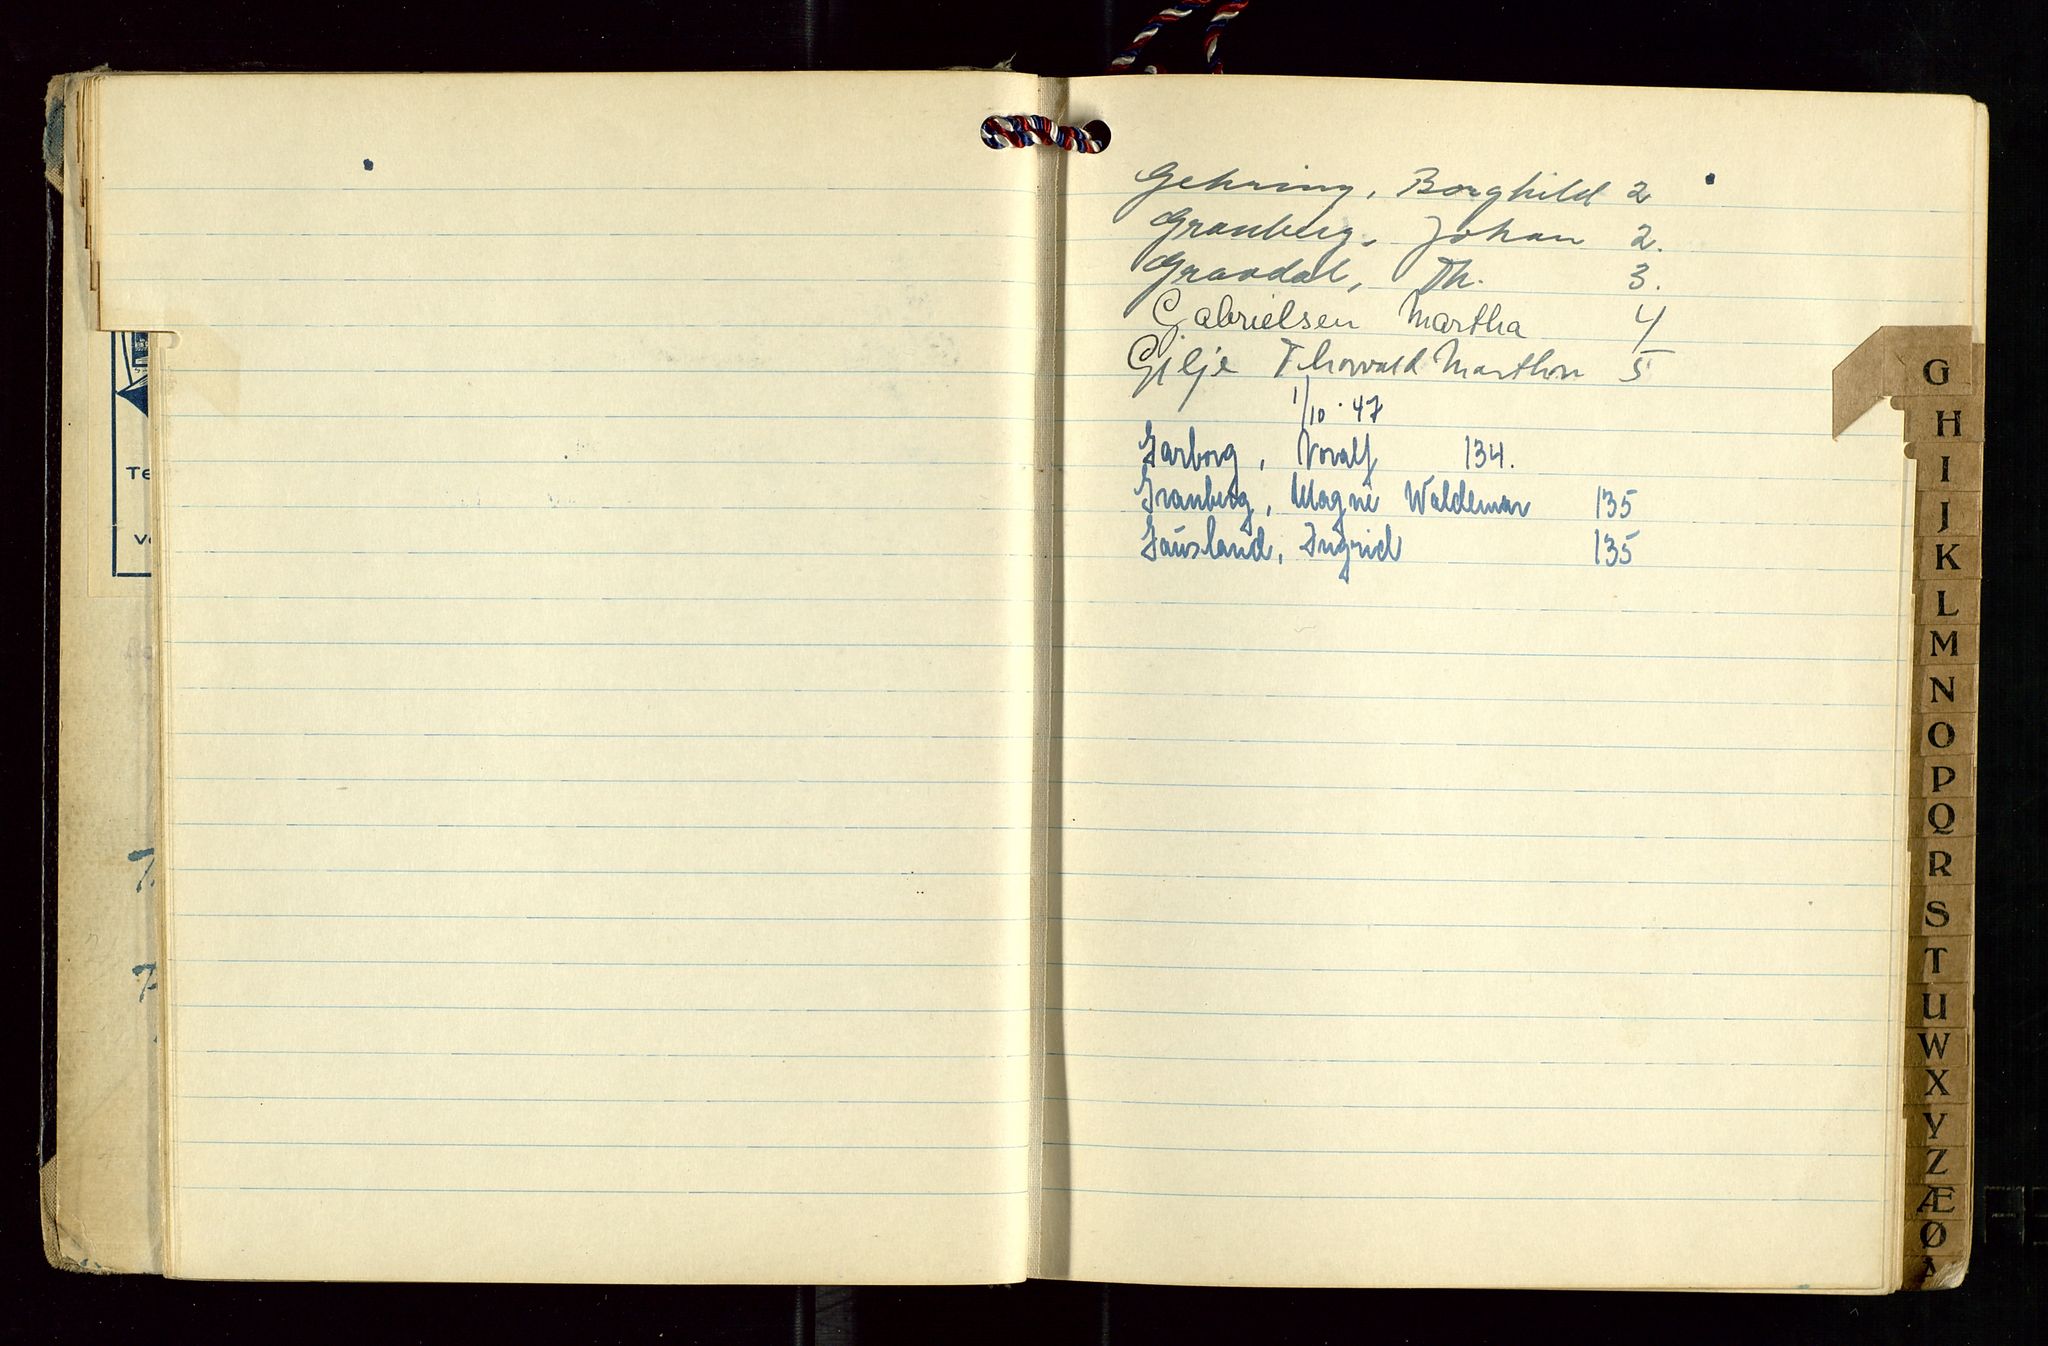 Gehring, Borghild 2
Granberg, Johan 2.
Gravdal, Th. 3.
Gabrielsen Martha 4
Gilje Thorvald Marthon 5
1/10 · 47
Garborg, Noralf 134.
Granberg, Magne Waldemar 135
Gausland, Ingrid 135
Te
V
7.
7
G
H
I
J
K
L
M
N
O
P
Q
R
S
T
U
W
X
Y
Z
Æ
Ø